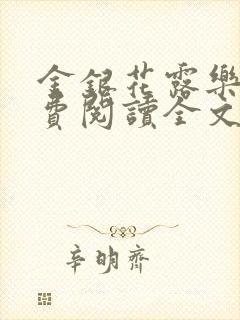 金銀花露樂
費閱讀全文
辛明齊